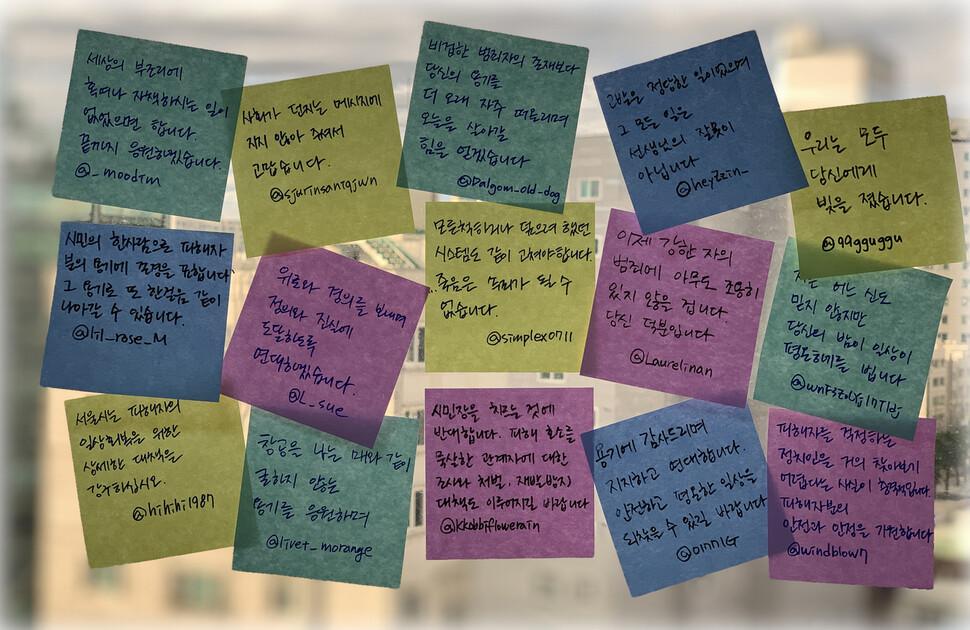 세상의 부조리에
혹여나 자책하시는 일이
없었으면 합니다.
끝까지 응원하겠습니다.
@_moodtm
사회가 던지는 메시지에
지지 않아 주셔서
고맙습니다.
@sjurinsantqjwn
비겁한 범죄자의 존재보다
당신의 용기를
더 오래 자주 떠올리며
오늘을 살아갈
힘을 얻겠습니다
@Dalgom_old_dog
고발은 정당한 일이었으며
그 모든 일은
선생님의 잘못이
아닙니다
@heyzzin_
우리는 모두
당신에게
빚을 졌습니다.
@99gguggu
시민의 한사람으로 피해자
분의 용기에 존경을 표합니다
그 용기로 또 한걸음 같이
나아갈 수 있습니다.
@lil_rose_M
위로와 경의를 보내며
정의와 진실에
도달하도록
연대하겠습니다.
@L_sue
모른척하거나 덮으려 했던
시스템도 같이 고쳐야합니다.
죽음은 속죄가 될 수
없습니다.
@simplex0711
이제 강한 자의
범죄에 아무도 조용히
있지 않을 겁니다.
당신 덕분입니다.
@Laurelinan
저는 어느 신도
믿지 않지만
당신의 밤이 일상이
평온하기를 빕니다
서울시는 피해자의
일상회복을 위한
상세한 대책을
강구하십시오.
@hihihi1987
창공을 나는 매와 같이
굴하지 않는
용기를 응원하며
@livet_morange
시민장을 치르는 것에
반대합니다. 피해 호소를
묵살한 관계자에 대한
조사와 처벌, 재발방지
대책도 이루어지길 바랍니다
@kkobbiflowerain
용기에 감사드리며
지지하고 연대합니다.
안전하고 평온한 일상을
되찾을 수 있길 바랍니다
@OINNIG
피해자를 걱정하는
정치인을 거의 찾아보기
어렵다는 사실이 충격적입니다.
피해자분의
안전과 안정을 기원합니다
@windblown